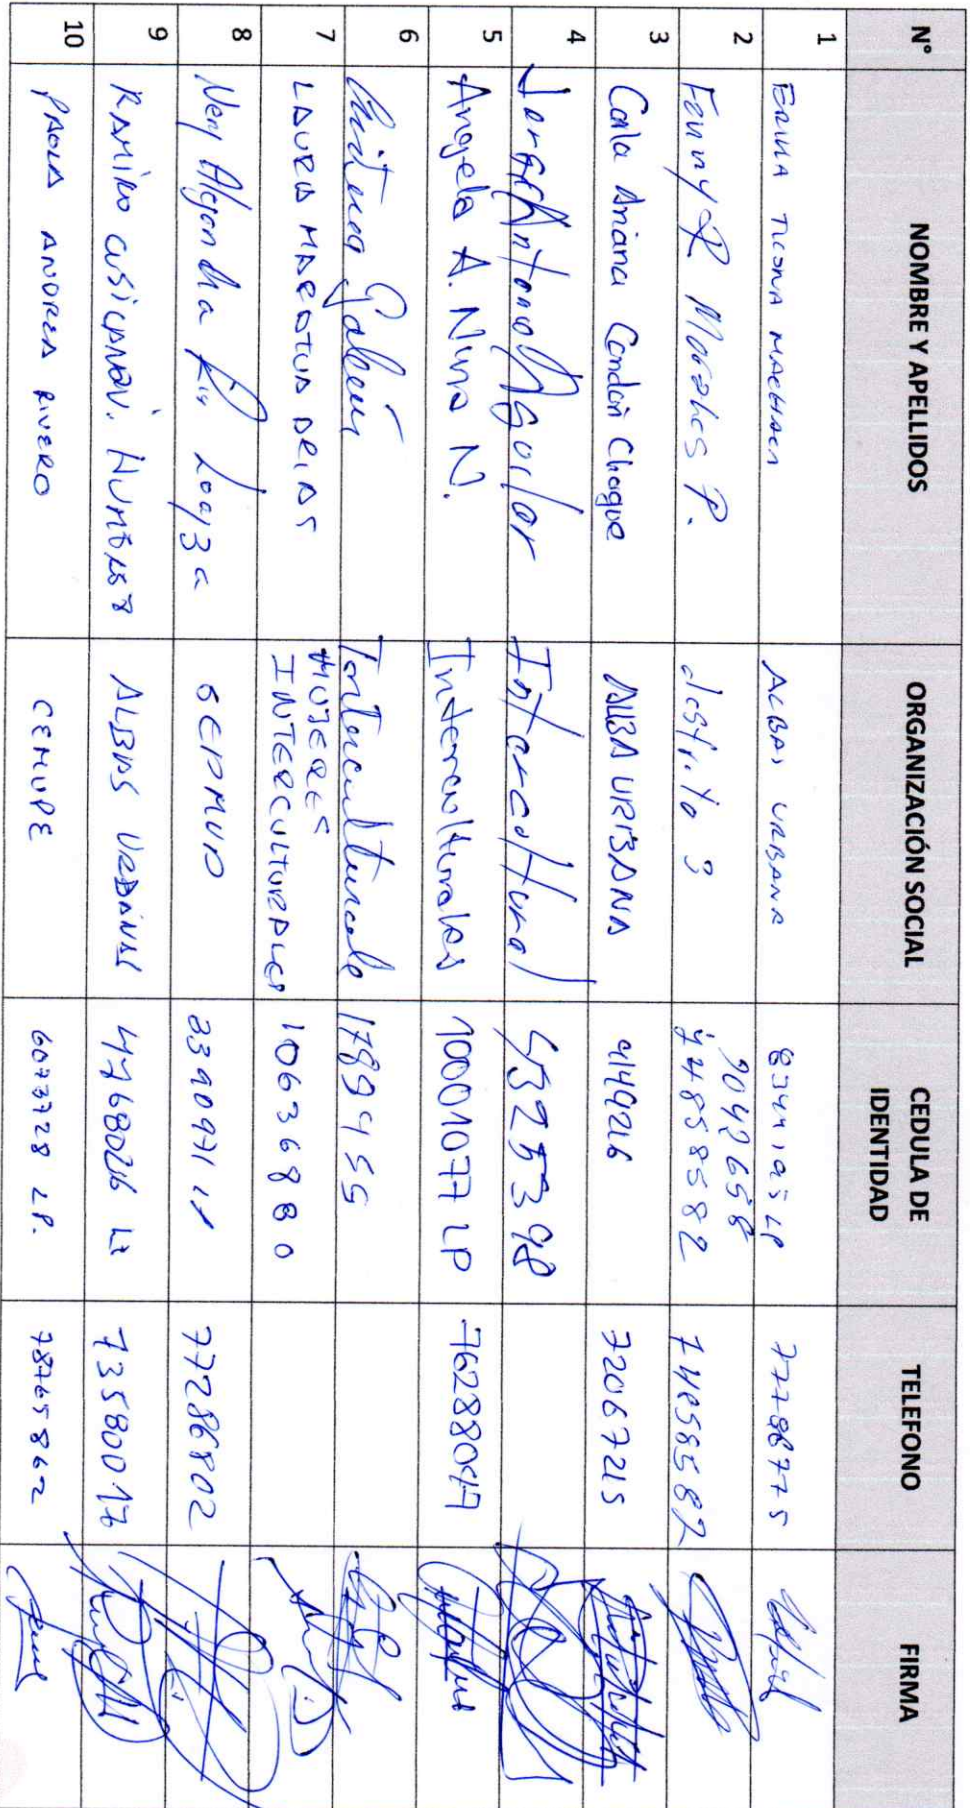 N° NOMBRE Y APELLIDOS ORGANIZACIÓN SOCIAL CEDULA DE IDENTIDAD TELEFONO FIRMA
1 TICONA ALBAS URBANA 8344105 LP 77786775
2 Fanny R Morales P. distrito 3 9042658 74858582 74858582
3 Carla Ariana Condori Choque ALBA URBANA 9149216 72067215
4 Jorge Antonio Aguilar Intercultural
5 Angela A. Nina N. Interculturales 10001077 LP 76288047
6 Interculturale 1789455
7 LAURA ARIAS MUJERES INTERCULTURALES 10636880
8 Loayza 3390971 77286802
9 RAMIRO ALBAS URBANAS 4768026 73580017
10 PAOLA ANDREA RIVERO CEMUPE 6073728 LP. 78765862